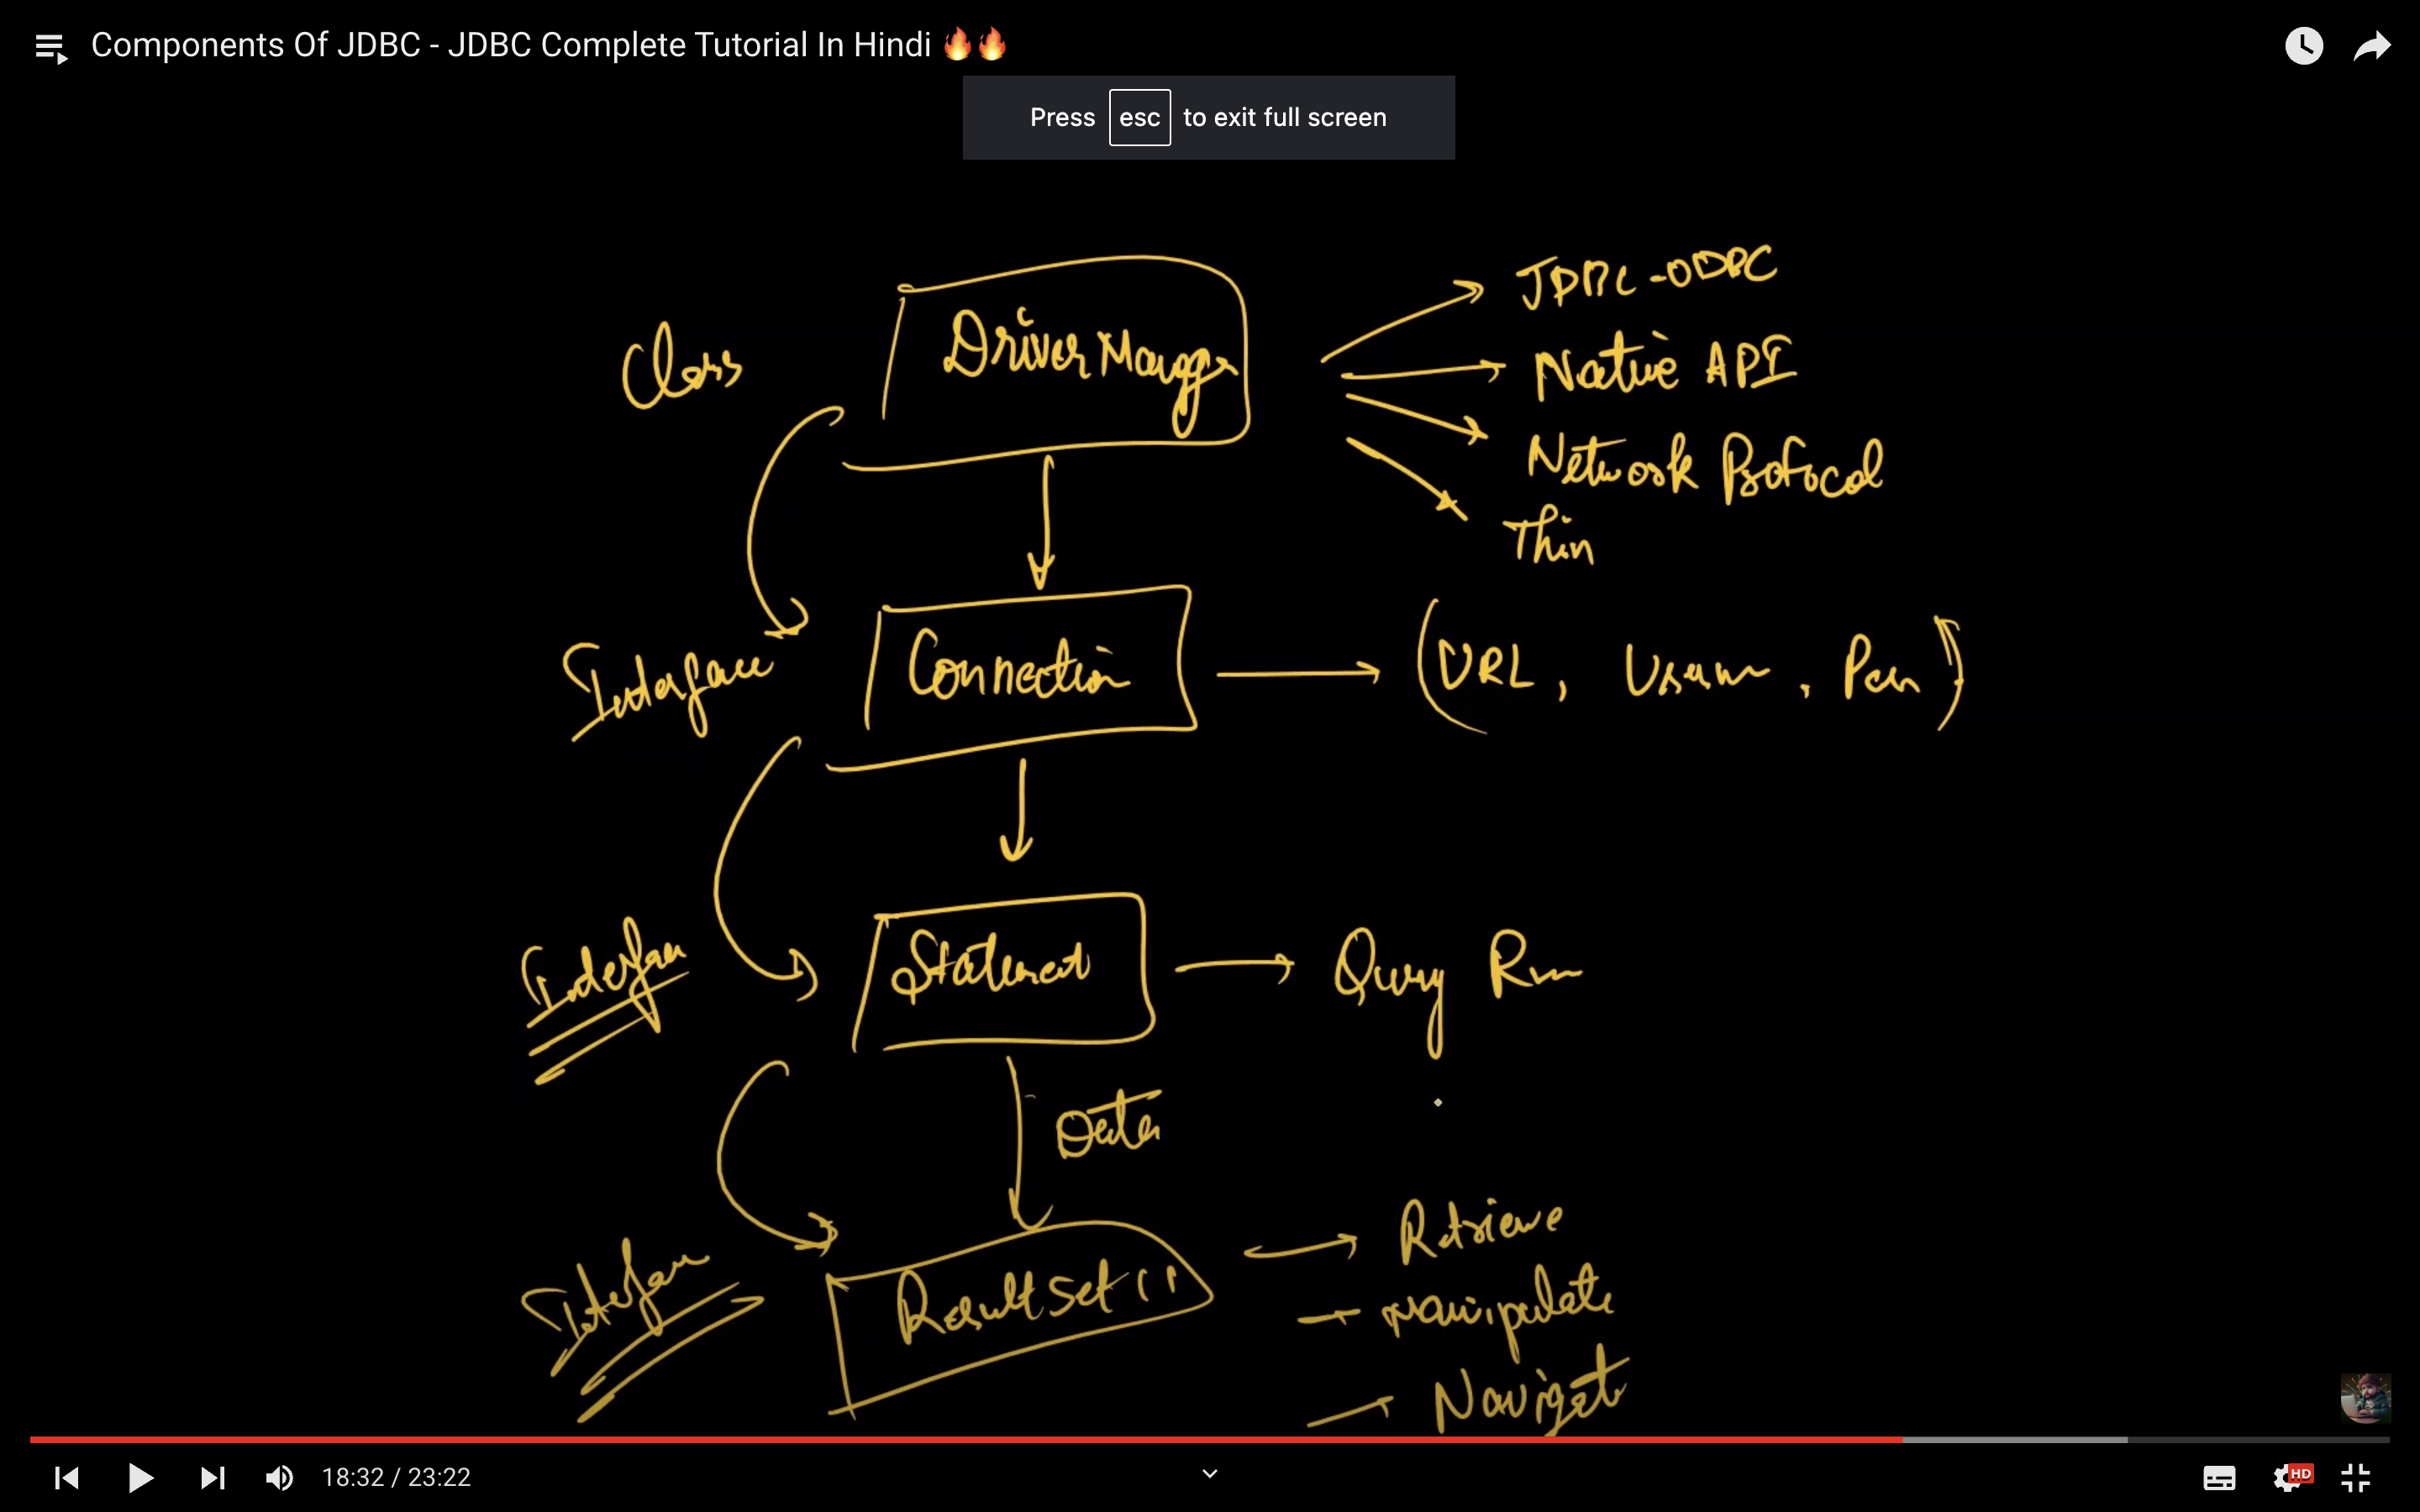 Components Of JDBC - JDBC Complete Tutorial In Hindi 🔥🔥
Press esc to exit full screen
Class
DriverManager
JDBC-ODBC
Native API
Network Protocol
Thin
Interface
Connection
(URL, Usern, Pass)
Interface
Statement
Query Run
Data
Interface
ResultSet()
Retrieve
Manipulate
Navigate
18:32 / 23:22
HD